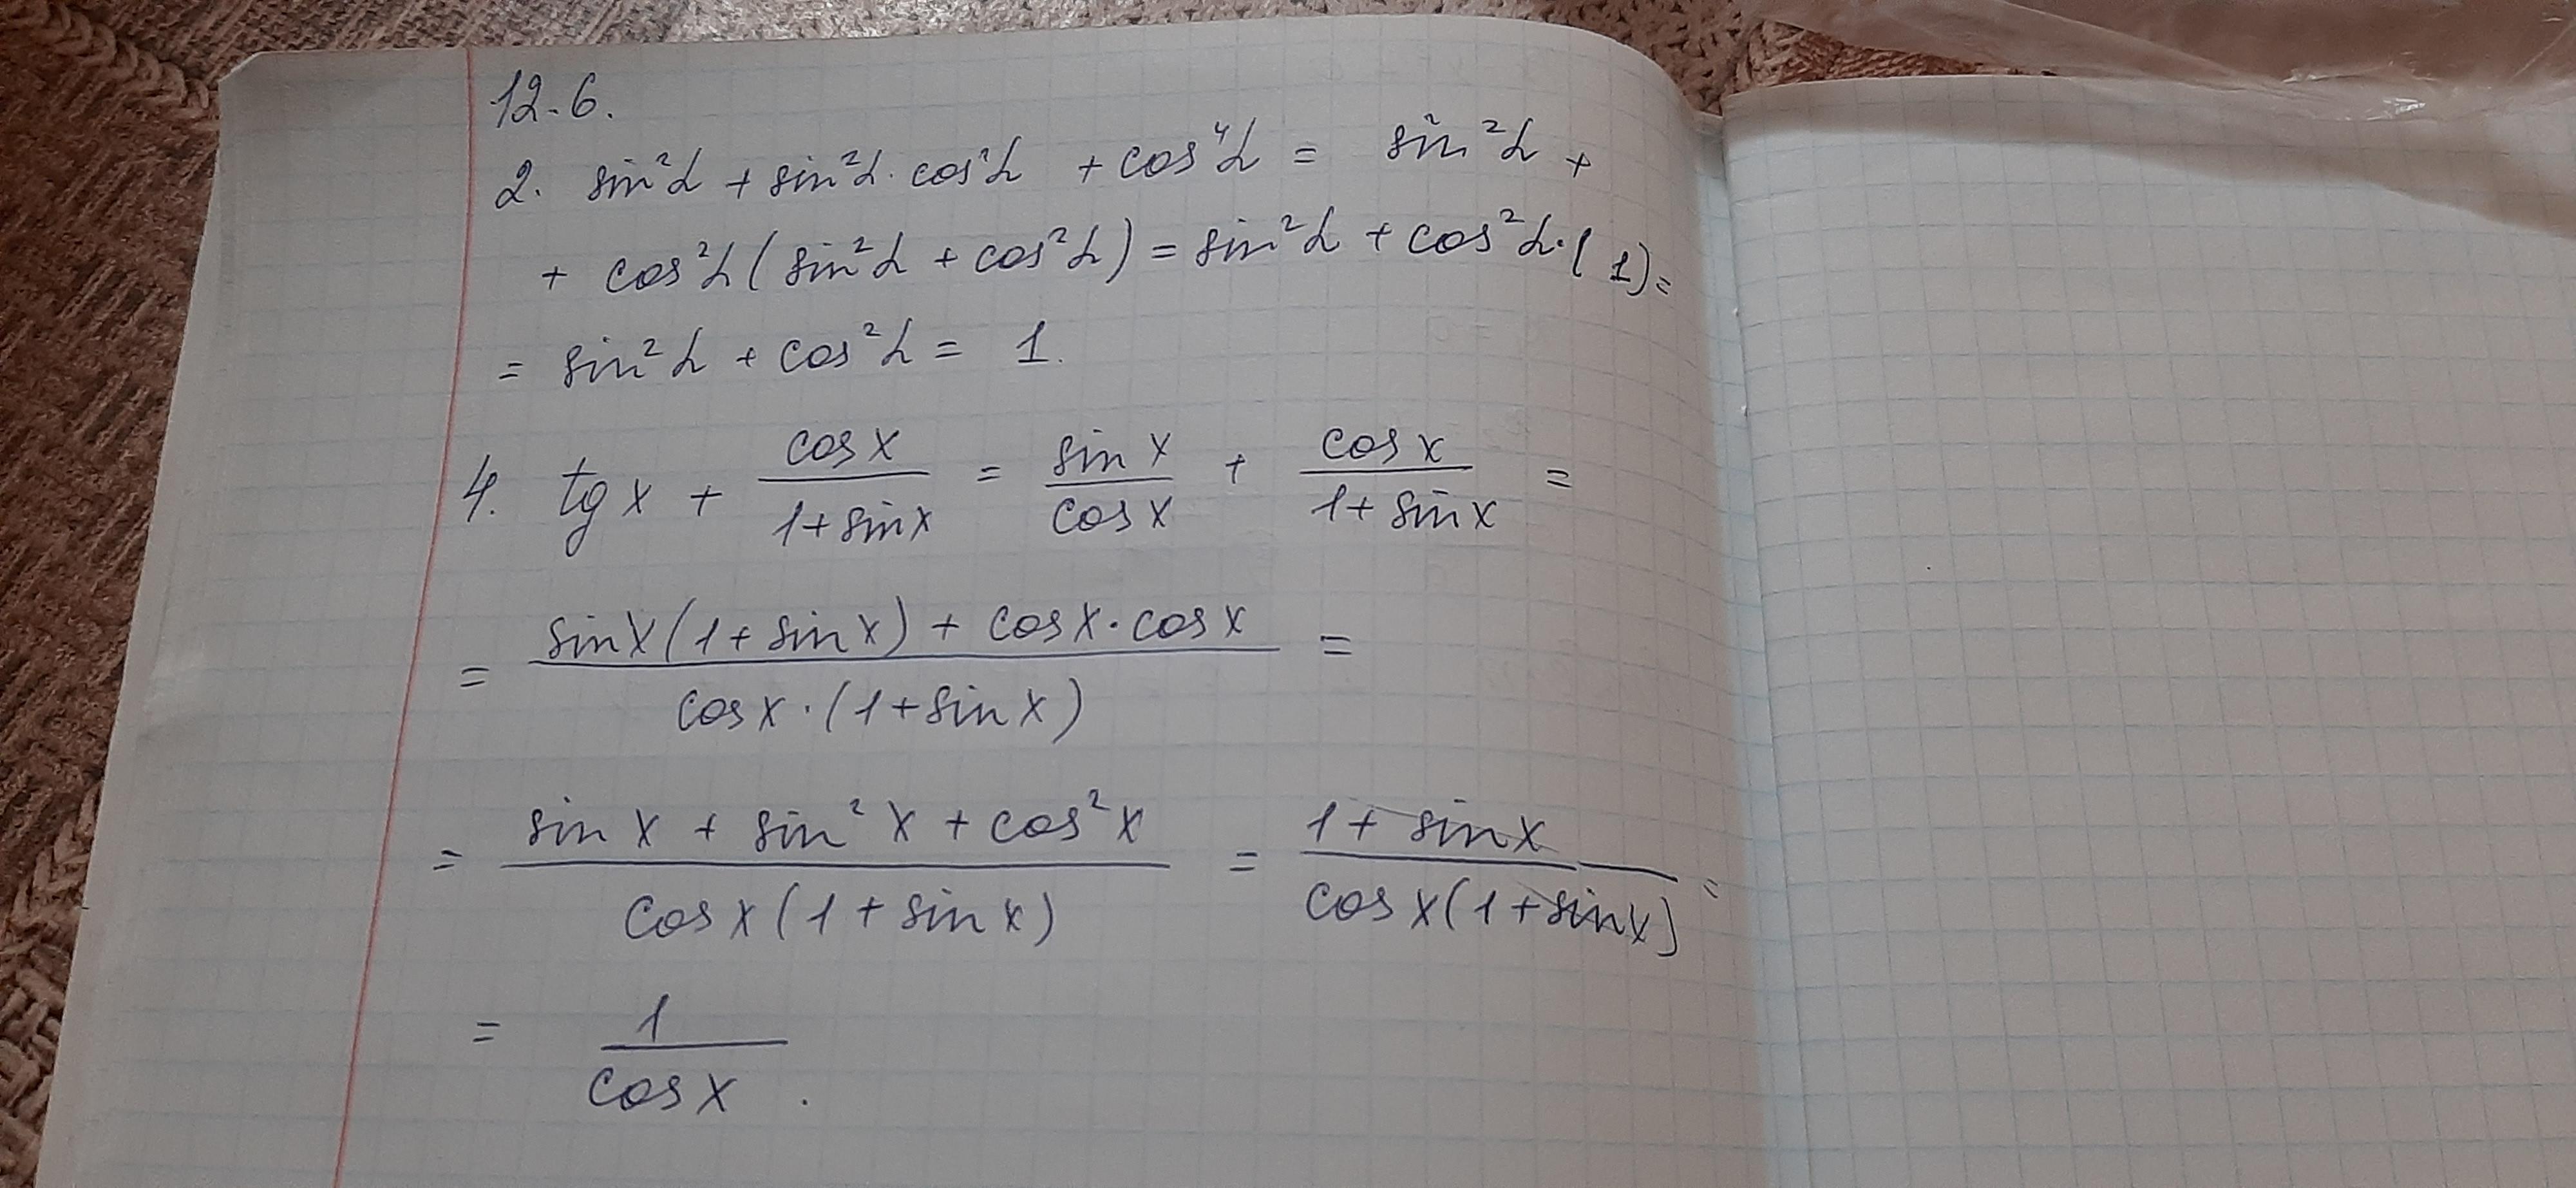 12.6.
2. sin²α + sin²α · cos²α + cos⁴α = sin²α +
+ cos²α (sin²α + cos²α) = sin²α + cos²α · (1) =
= sin²α + cos²α = 1.
4. tg x + cos x / 1 + sin x = sin x / cos x + cos x / 1 + sin x =
= sin x (1 + sin x) + cos x · cos x / cos x · (1 + sin x) =
= sin x + sin² x + cos² x / cos x (1 + sin x) = 1 + sin x / cos x (1 + sin x) =
= 1 / cos x .